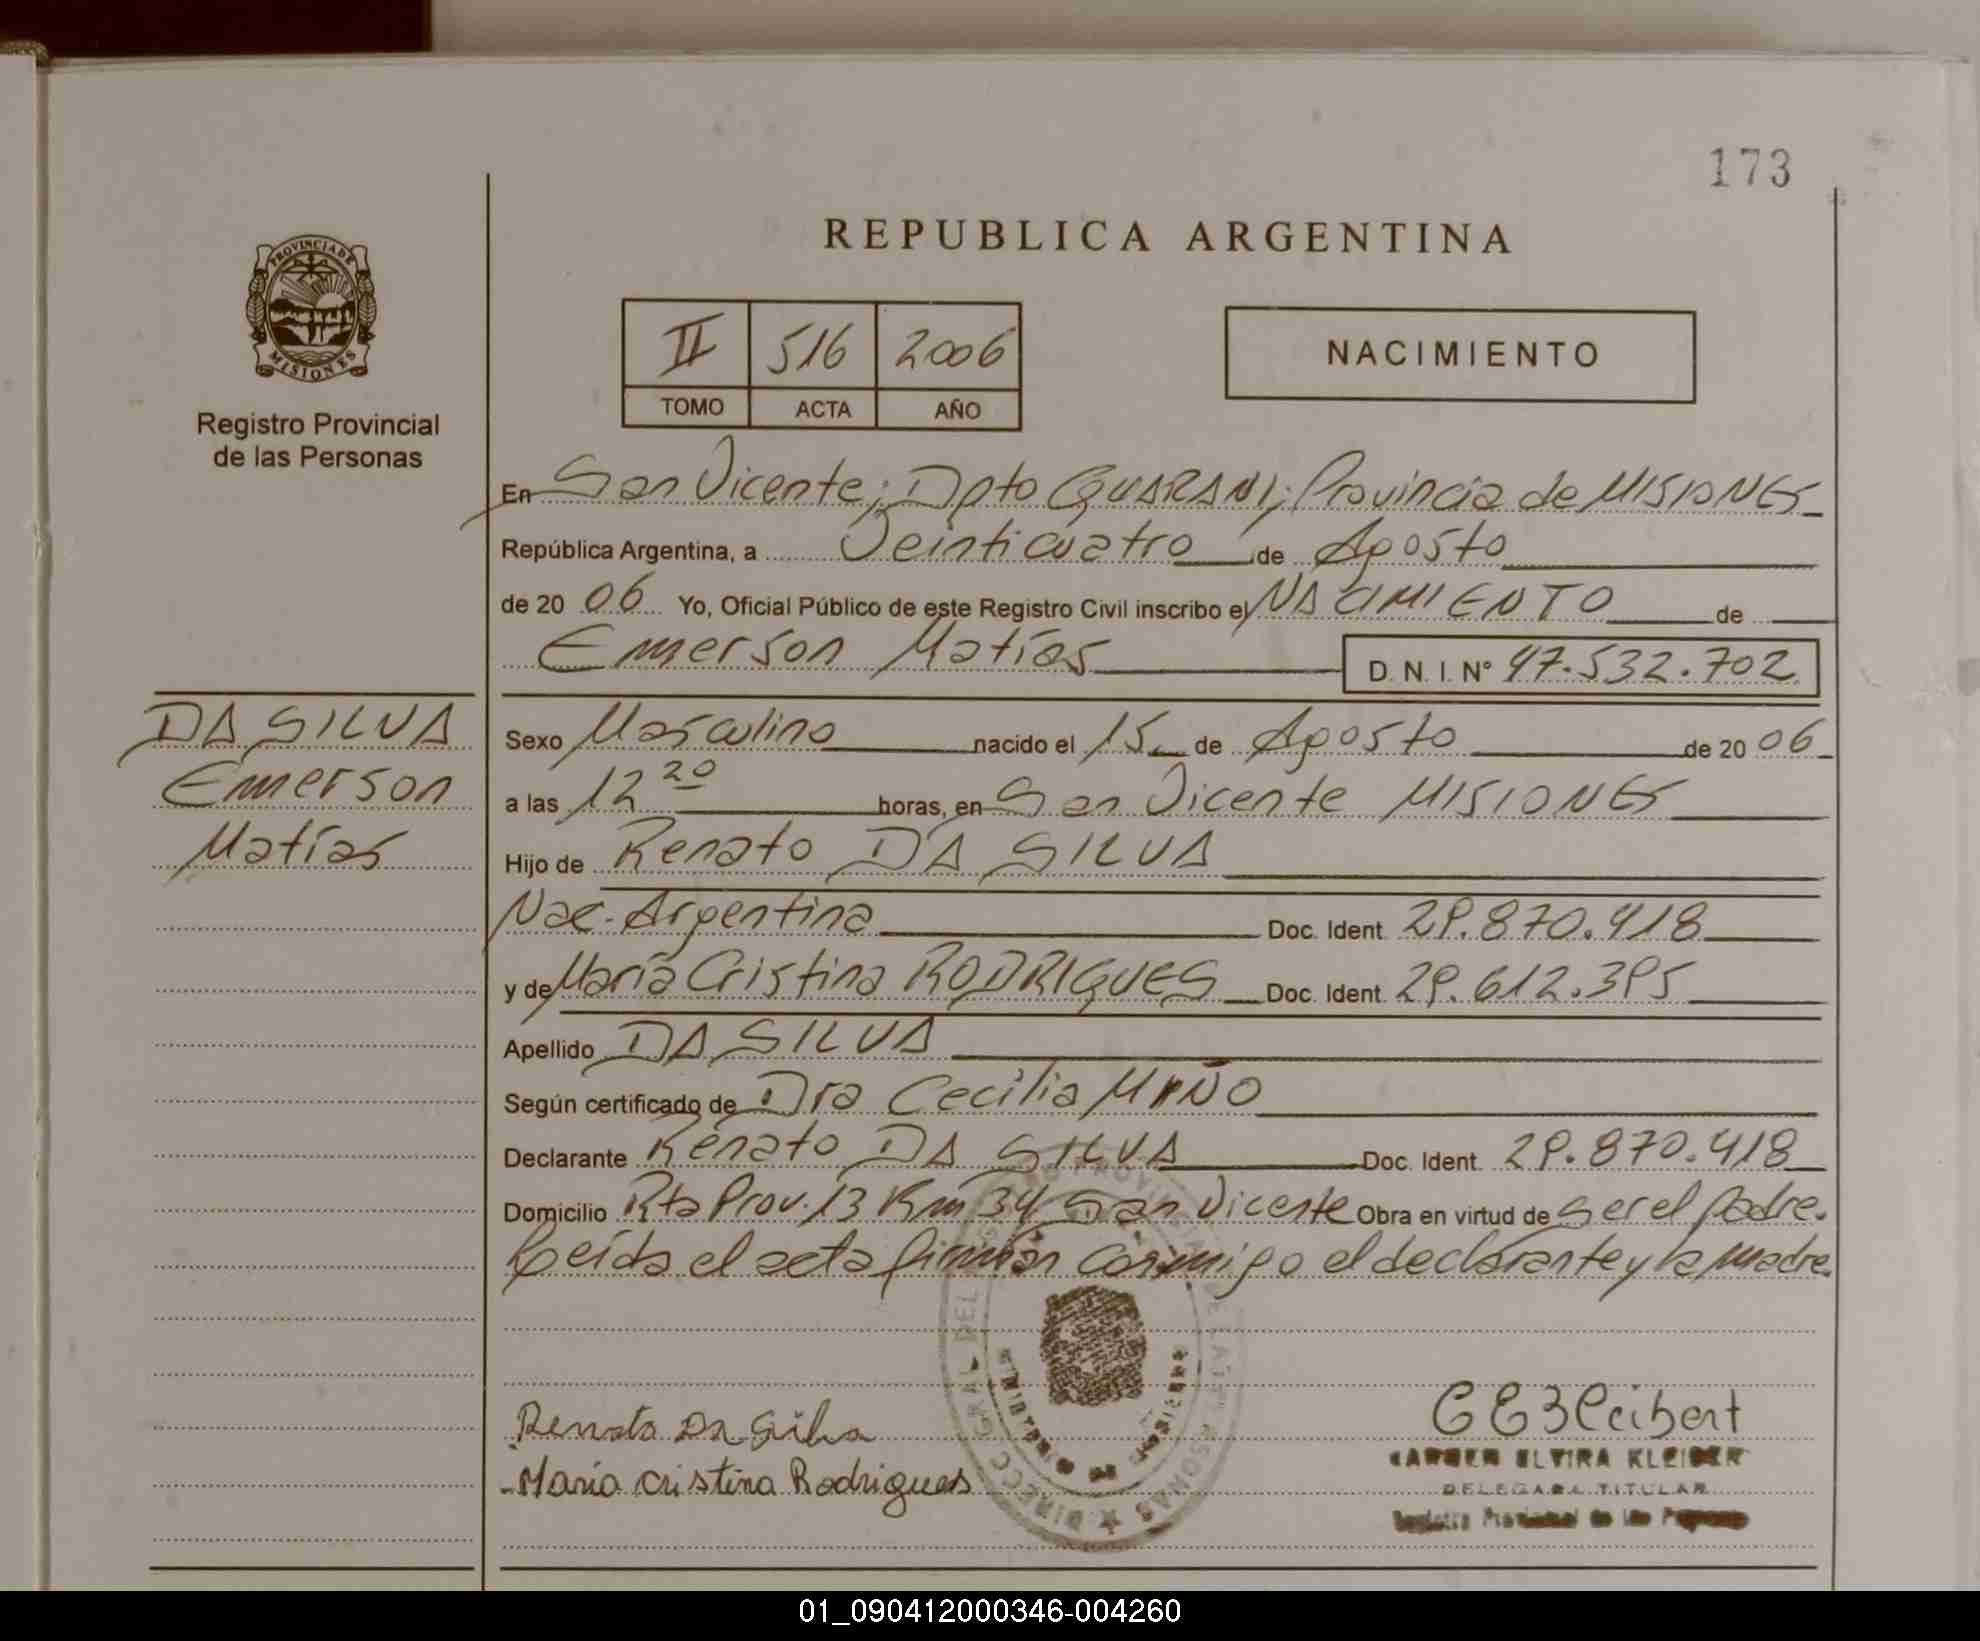 173
REPUBLICA ARGENTINA
PROVINCIA DE
MISIONES
Registro Provincial
de las Personas
II 516 2006
TOMO ACTA AÑO
NACIMIENTO
En San Vicente; Dpto GUARANI; Provincia de MISIONES
República Argentina, a Veinticuatro de Agosto
de 20 06 Yo, Oficial Público de este Registro Civil inscribo el NACIMIENTO de
Emerson Matías D.N.I. Nº 47.532.702
DA SILVA
Emerson
Matías
Sexo Masculino nacido el 15 de Agosto de 20 06
a las 12 20 horas, en San Vicente MISIONES
Hijo de Renato DA SILVA
Nac. Argentina Doc. Ident. 29.870.418
y de María Cristina RODRIGUES Doc. Ident. 29.612.395
Apellido DA SILVA
Según certificado de Dra Cecilia MIÑO
Declarante Renato DA SILVA Doc. Ident. 29.870.418
Domicilio Rta Prov. 13 Km 34 San Vicente Obra en virtud de ser el padre.
Leída el acta firman conmigo el declarante y la madre.
Renato Da Silva
Maria Cristina Rodrigues
CARMEN ELVIRA
DELEGADA TITULAR
Registro Provincial de las Personas
01_090412000346-004260